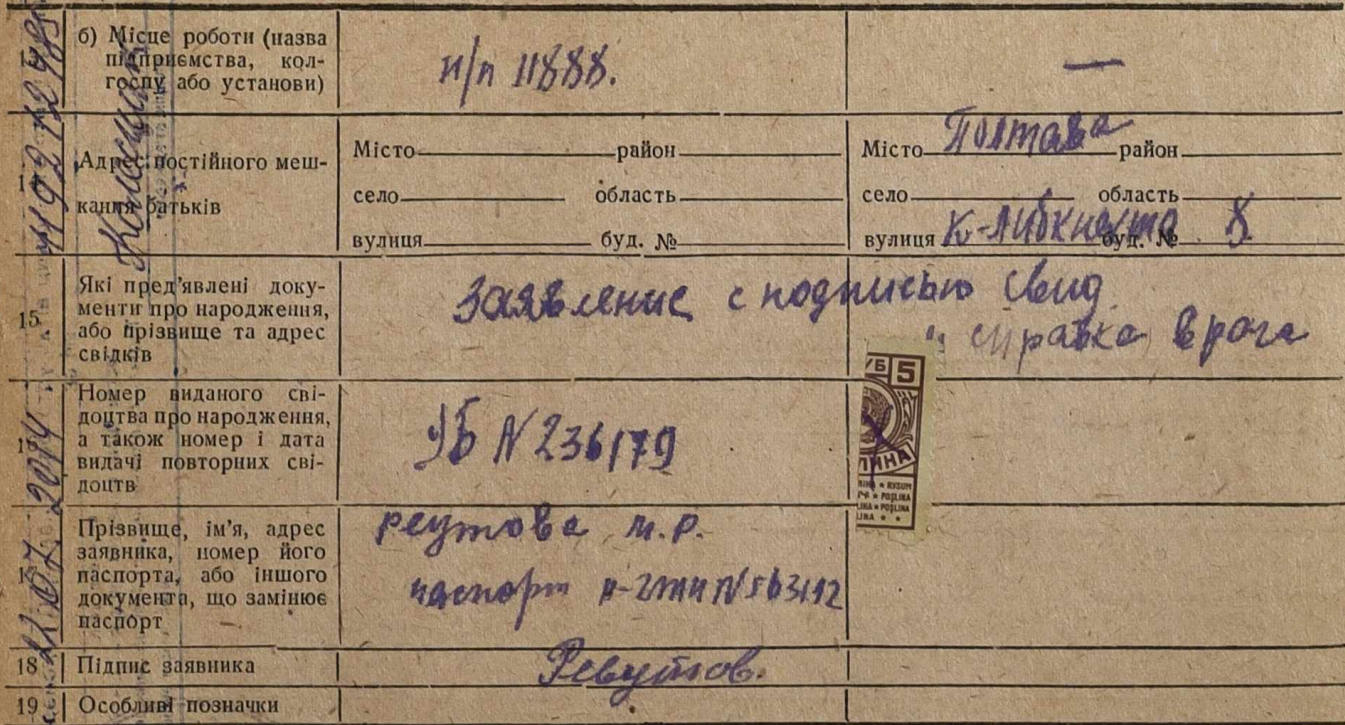 б) Місце роботи (назва
підприємства, кол-
госпу або установи)
п/п 11888.
—
Адрес постійного меш-
кання батьків
Місто район
село область
вулиця буд. №
Місто Полтава район
село область
вулиця К-Либкнехта буд. № 8
15
Які пред'явлені доку-
менти про народження,
або прізвище та адрес
свідків
Заявление с подписью свид
и справка врача
Номер виданого сві-
доцтва про народження,
а також номер і дата
видачі повторних сві-
доцтв
УБ N 236179
УБ 5
ЛИНА
RYSUM
POŞLINA
POŞLINA
Прізвище, ім'я, адрес
заявника, номер його
паспорта, або іншого
документа, що замінює
паспорт
Реутова М.Р.
паспорт N 563112
18 Підпис заявника
Ревутов.
19 Особливі позначки